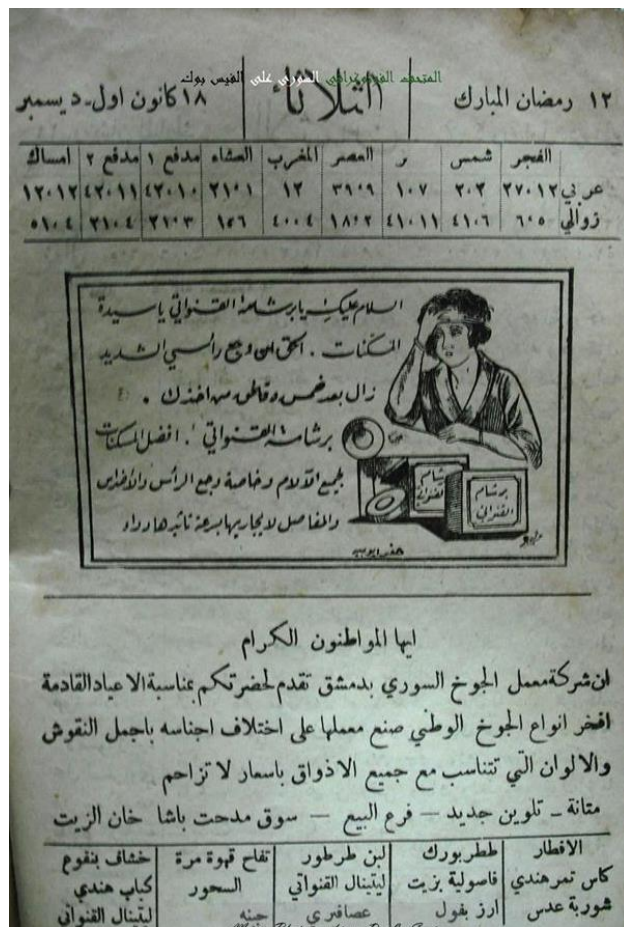 المتحف الفوتوغرافي السوري على الفيس بوك
١٢ رمضان المبارك
الثلاثاء
١٨ كانون اول - ديسمبر
الفجر شمس ر العصر المغرب العشاء مدفع ١ مدفع ٢ امساك
عربي ١٢،٢٧ ٢،٢ ٧،١ ٩،٣٩ ١٢ ١،٢١ ١٠،٤٢ ١١،٤٢ ١٢،١٢
زوالي ٥،٦ ٦،٤١ ١١،٤١ ٢،١٨ ٤،٤ ٦،١٥ ٣،٢١ ٤،٢١ ٤،٥١
السلام عليك يا برشامة القنواتي يا سيدة
المسكنات . الحق اهى وجع رأسي الشديد
زال بعد خمس دقائق من اخذك .
برشامة القنواتي . افضل المسكنات
لجميع الآلام وخاصة وجع الرأس والاضراس
والمفاصل لا يجاريها بسرعة تأثيرها دواء
برشام
القنواتي
برشام
القنواتي
ايها المواطنون الكرام
ان شركة معمل الجوخ السوري بدمشق تقدم لحضرتكم بمناسبة الاعياد القادمة
افخر انواع الجوخ الوطني صنع معملها على اختلاف اجناسه باجمل النقوش
والالوان التي تتناسب مع جميع الاذواق باسعار لا تزاحم
متانة - تلوين جديد — فرع البيع — سوق مدحت باشا خان الزيت
الافطار ططربورك لبن طرطور تفاح قهوة مرة خشاف بنقوع
كاس تمر هندي فاصولية بزيت ليتينال القنواتي السحور كباب هندي
شوربة عدس ارز بفول عصافيري جبنه ليتينال القنواتي